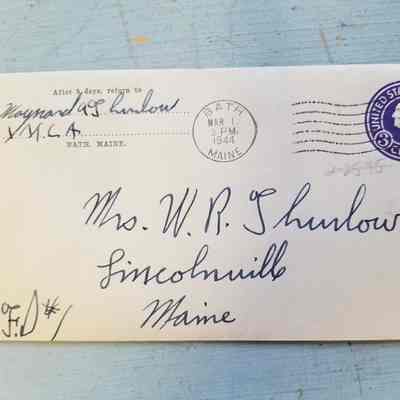 After 5 days, return to
Maynard A Thurlow
Y.M.C.A
BATH, MAINE.
BATH
MAR 1
3 PM
1944
MAINE
UNITED STATES
3
Mrs. W. R. Thurlow
Lincolnville
Maine